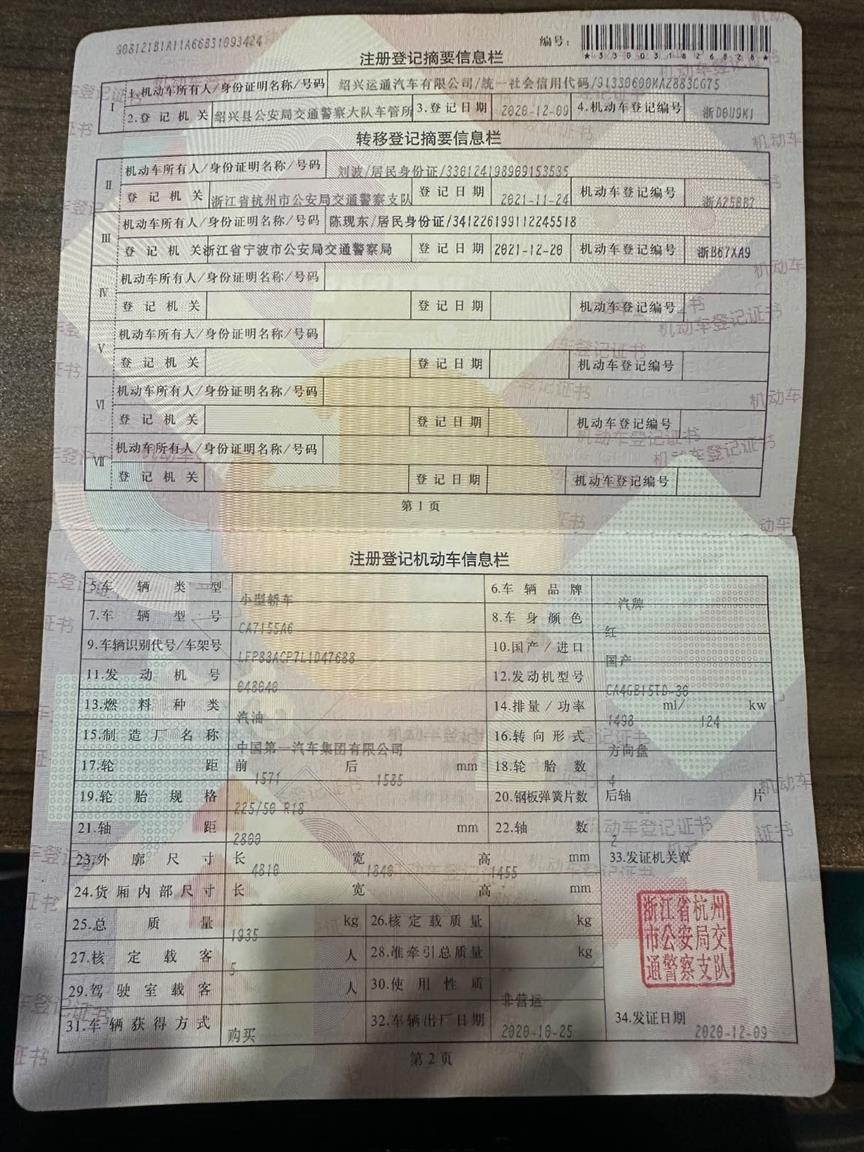 908121B1A11A66831093424
编号:
*330031826828*
注册登记摘要信息栏
I
1.机动车所有人/身份证明名称/号码 绍兴运通汽车有限公司/统一社会信用代码/91330600MAZ883CG75
2.登记机关 绍兴县公安局交通警察大队车管所 3.登记日期 2020-12-09 4.机动车登记编号 浙D0U9K1
转移登记摘要信息栏
II
机动车所有人/身份证明名称/号码 刘波/居民身份证/330124198909153535
登记机关 浙江省杭州市公安局交通警察支队 登记日期 2021-11-24 机动车登记编号
III
机动车所有人/身份证明名称/号码 陈现东/居民身份证/341226199112245518
登记机关 浙江省宁波市公安局交通警察局 登记日期 2021-12-20 机动车登记编号 浙B67XA9
IV
机动车所有人/身份证明名称/号码
登记机关 登记日期 机动车登记编号
V
机动车所有人/身份证明名称/号码
登记机关 登记日期 机动车登记编号
VI
机动车所有人/身份证明名称/号码
登记机关 登记日期 机动车登记编号
VII
机动车所有人/身份证明名称/号码
登记机关 登记日期 机动车登记编号
第1页
注册登记机动车信息栏
5.车辆类型 小型轿车 6.车辆品牌 汽牌
7.车辆型号 CA7155A6 8.车身颜色 红
9.车辆识别代号/车架号 LFP83ACP7L1D47688 10.国产/进口 国产
11.发动机号 048040 12.发动机型号 CA4GB15TD-30
13.燃料种类 汽油 14.排量/功率 1498 ml/ 124 kw
15.制造厂名称 中国第一汽车集团有限公司 16.转向形式 方向盘
17.轮距 前 1571 后 1585 mm 18.轮胎数 4
19.轮胎规格 225/50 R18 20.钢板弹簧片数 后轴 片
21.轴距 2800 mm 22.轴数 2
23.外廓尺寸 长 4810 宽 1840 高 1455 mm 33.发证机关章
24.货厢内部尺寸 长 宽 高 mm
25.总质量 1935 kg 26.核定载质量 kg
浙江省杭州
市公安局交
通警察支队
27.核定载客 5 人 28.准牵引总质量 kg
29.驾驶室载客 人 30.使用性质 非营运
31.车辆获得方式 购买 32.车辆出厂日期 2020-10-25 34.发证日期 2020-12-09
第2页